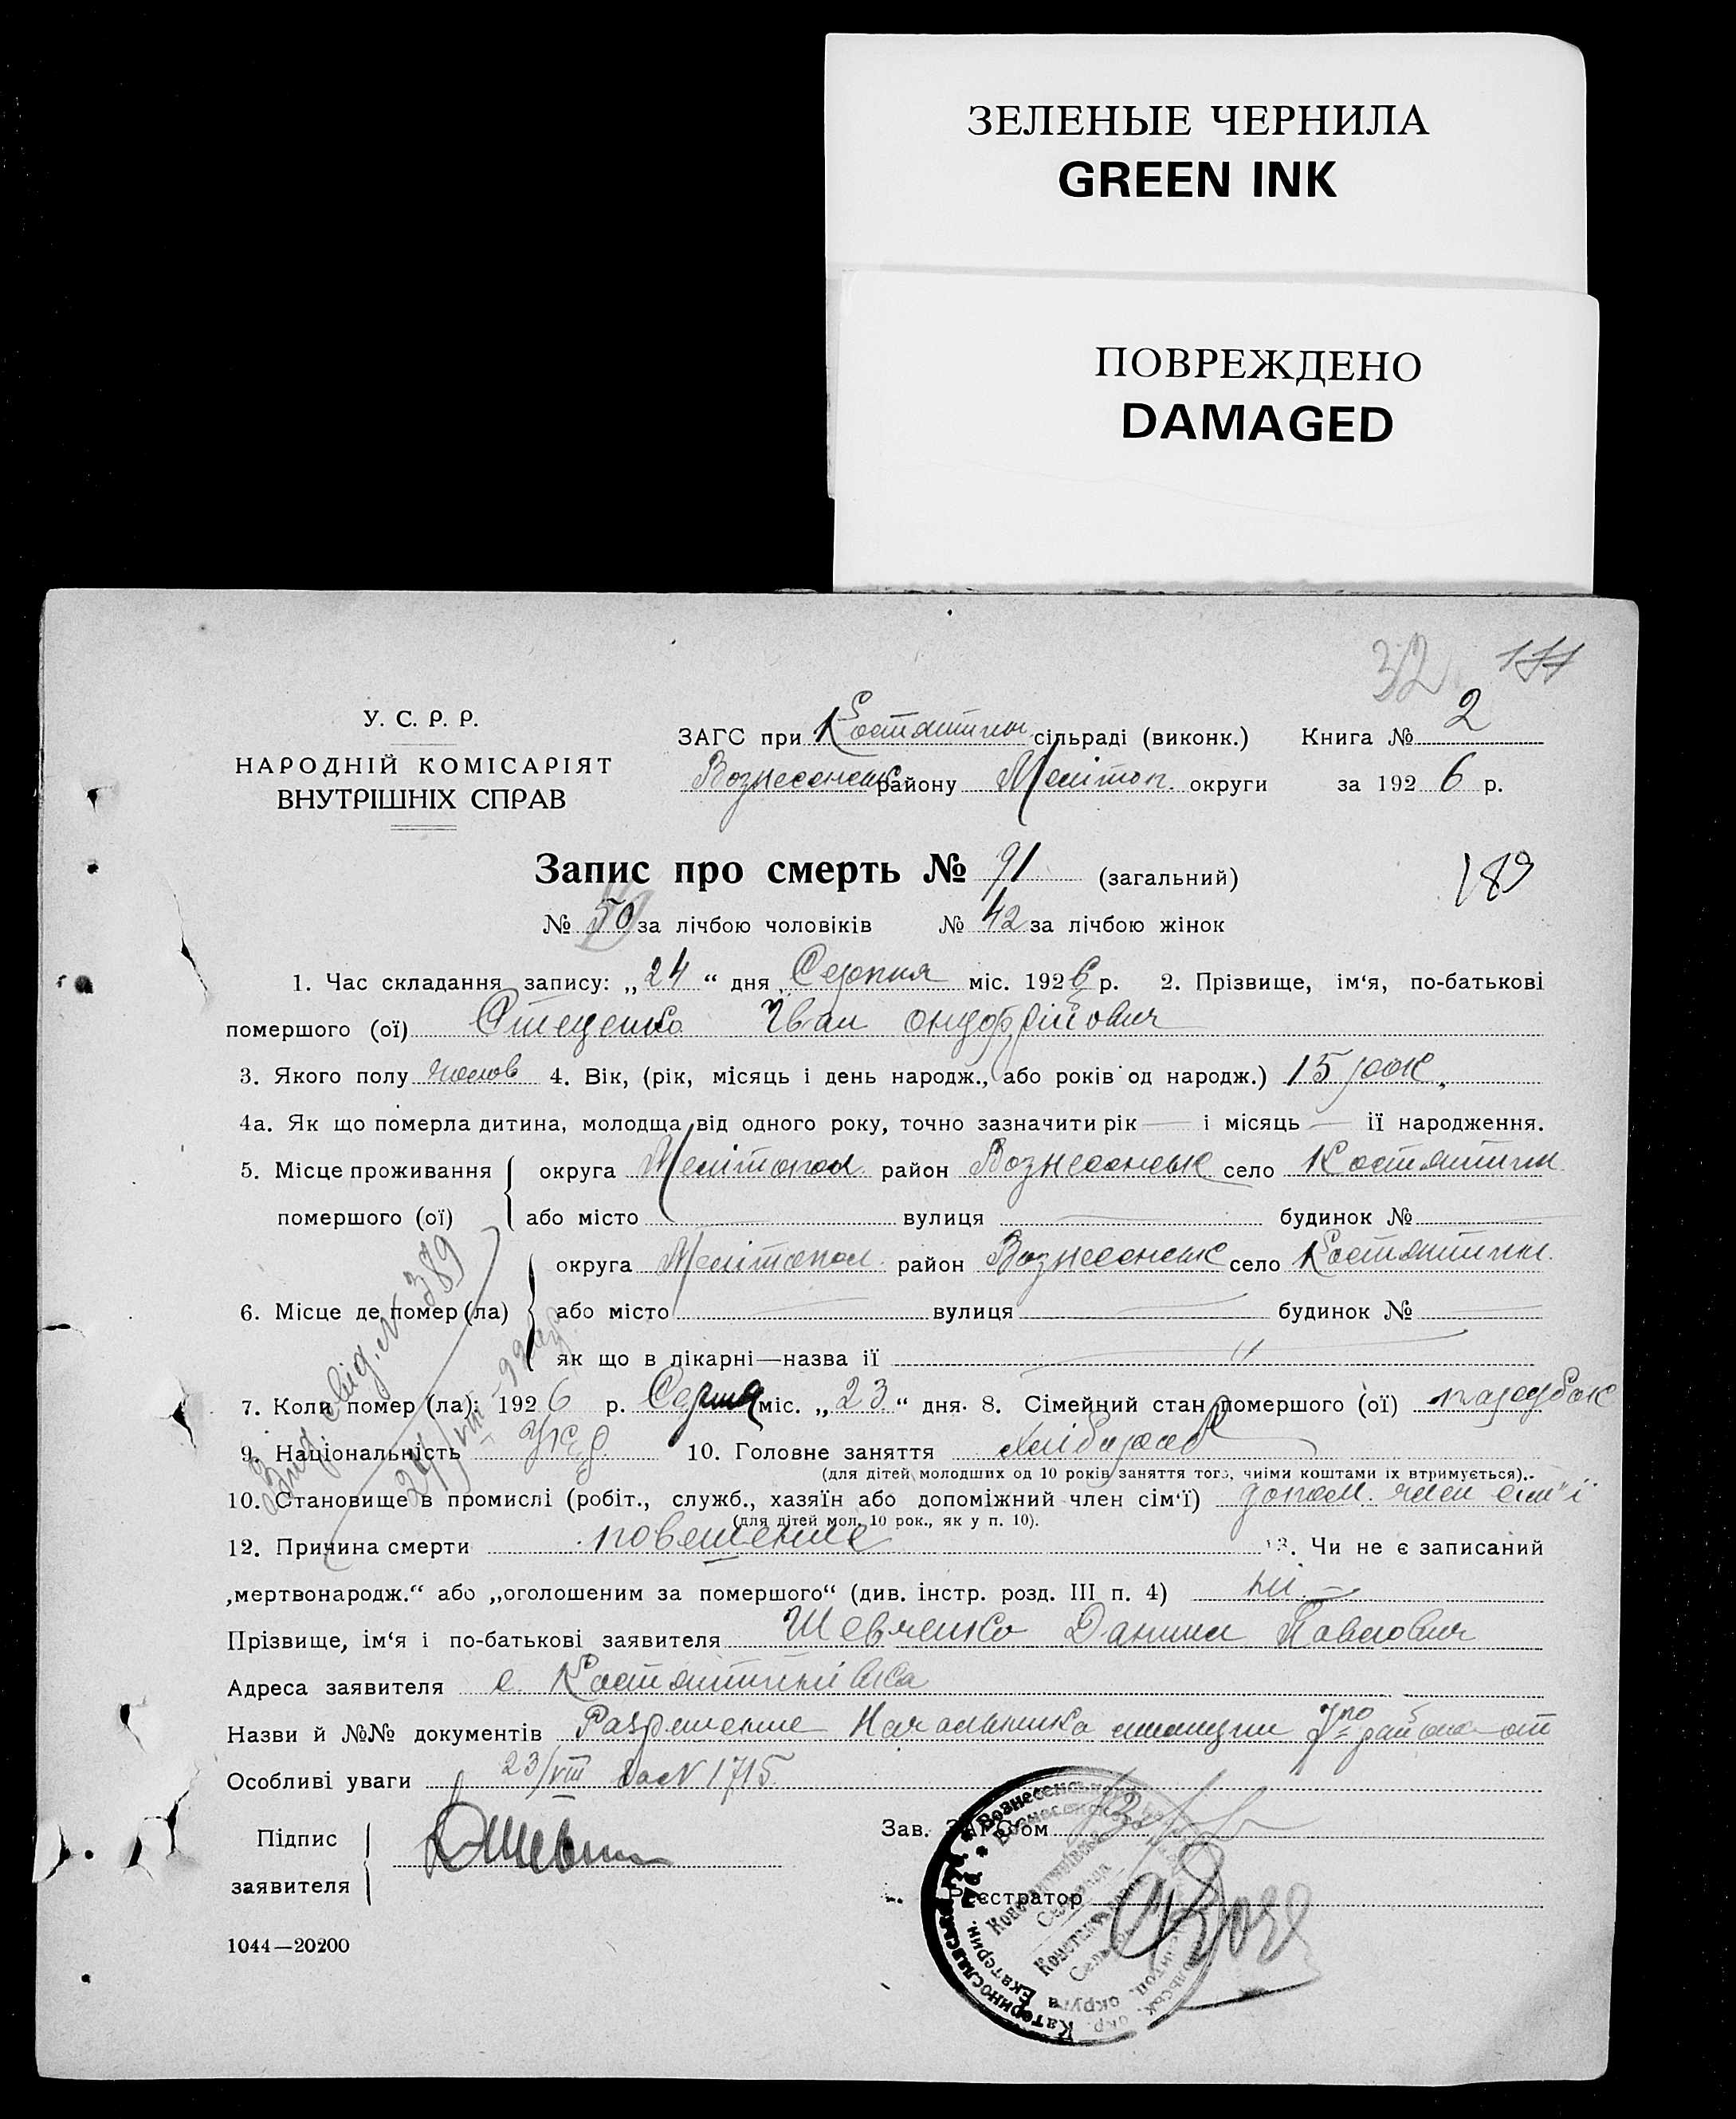 ЗЕЛЕНЫЕ ЧЕРНИЛА
GREEN INK
ПОВРЕЖДЕНО
DAMAGED
32 177
У. С. Р. Р.
НАРОДНІЙ КОМІСАРІЯТ
ВНУТРІШНІХ СПРАВ
ЗАГС при Костянтин сільраді (виконк.) Книга № 2
Вознесенськ району Мелітоп. округи за 1926 р.
Запис про смерть № 91 (загальний)
189
№ 50 за лічбою чоловіків № 42 за лічбою жінок
1. Час складання запису: „24“ дня Серпня міс. 1926 р. 2. Прізвище, ім‘я, по-батькові
помершого (ої) Стеценко Іван Онуфрійович
3. Якого полу чолов 4. Вік, (рік, місяць і день народж., або років од народж.) 15 рок.
4а. Як що померла дитина, молодща від одного року, точно зазначити рік — і місяць — її народження.
5. Місце проживання округа Мелітопол. район Вознесенськ село Костянтин
помершого (ої) або місто вулиця будинок №
округа Мелітопол. район Вознесенськ село Костянтин.
6. Місце де помер (ла) або місто вулиця будинок №
як що в лікарні—назва її
7. Коли помер (ла): 1926 р. Серпня міс. „23“ дня. 8. Сімейний стан помершого (ої) парубок
9. Національність Укр. 10. Головне заняття хлібороб
(для дітей молодших од 10 років заняття того, чиїми коштами їх втримується).
10. Становище в промислі (робіт., служб., хазяїн або допоміжний член сім‘ї) допом. член сім"ї
(для дітей мол. 10 рок., як у п. 10).
12. Причина смерти повешение 13. Чи не є записаний
„мертвонародж.“ або „оголошеним за помершого“ (див. інстр. розд. III п. 4) ні
Прізвище, ім‘я і по-батькові заявителя Шевченко Данило Павлович
Адреса заявителя с. Костянтинівка
Назви й №№ документів Разрешение Начальника милиции району от
Особливі уваги 23/VIII за N 1715
Підпис
заявителя
Зав. ЗАГСом
Реєстратор
1044—20200